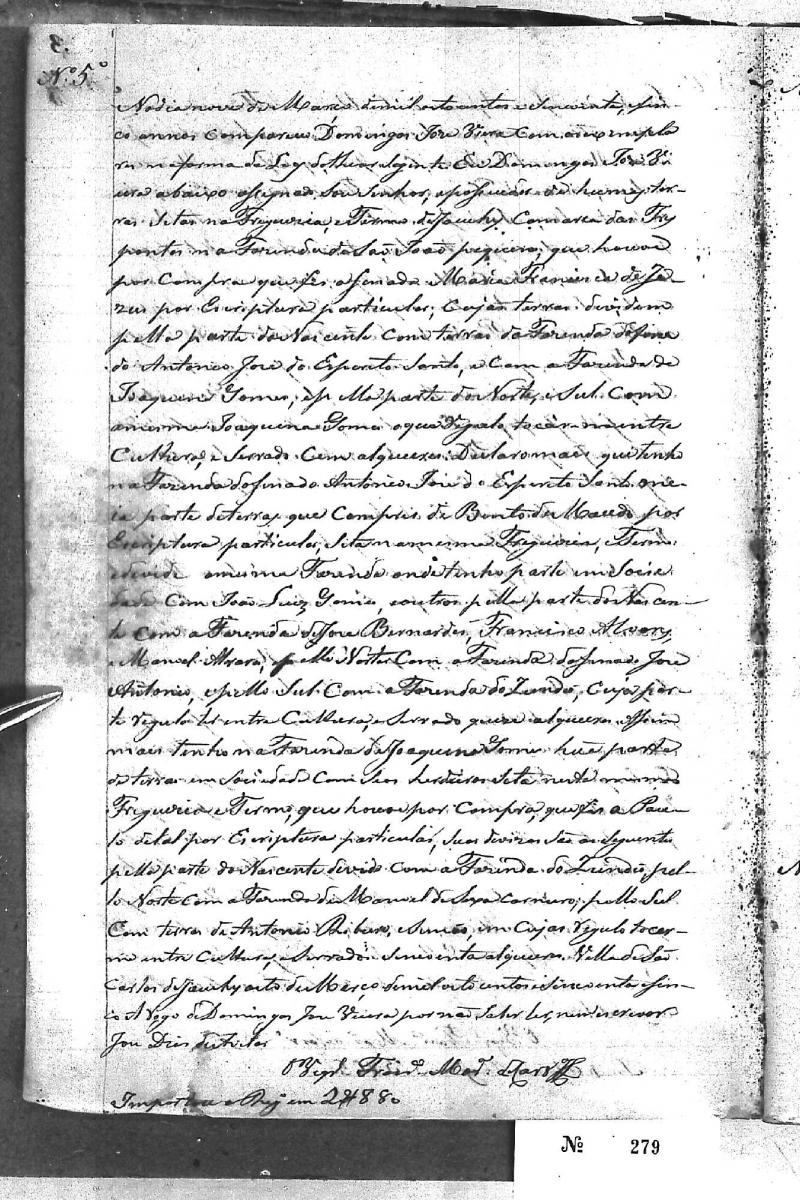 3.
Nº 5º
No dia nove de Março de mil oito centos e sincoenta, e sin-
co annos compareceu Domingos Joze Vieira Com os exempla
res na forma da Ley do theor Seginte Eu Domingos Joze Vi
eira abaixo asignado Sou Senhor, e posuidor de humas ter-
ras Setas na Freguezia, e Termo de Jacuhy Comarca das Trez
pontas na Fazenda de São João pequeno, que houve
por Compra que fes a finada Maria Francisca de Je-
zus por Escriptura particular, Cujas terras dividem
pella parte do Nascente Com terras da Fazenda do fina
do Antonio Joze do Esperito Santo, e Com a Fazenda de
Joaquina Gomes, e pella parte do Norte, e Sul Com
a mesma Joaquina Gomes o que Regulo, tocar-me entre
Culturas, e Serrado Cem alqueires. Declaro mais que tenho
na Fazenda do finado Antonio Joze do Esperito Santo me-
ia parte de terras que Comprei de Bento de Macedo por
Escriptura particular, Seta na mesma Freguezia, e Termo
e devide a mesma Fazenda onde tenho parte em Socie
dade Com João Luiz Gomes, e outros pella parte do Nascen-
te Com a Fazenda de Joze Bernardes, Francisco Alvares
e Manoel Alvares, e pello Norte Com a Fazenda do finado Joze
Antonio, e pello Sul Com a Fazenda do Zundú, Cuja par-
te regulo ter entre Cultura, e Serrado quinze alqueires Assim
mais tenho na Fazenda de Joaquina Gomes huã parte
de terras em Sociedade Com Seos herdeiros Seta nesta mesma
Fregueria e Termo, que houve por Compra, que fes a Pau-
lo de tal por Escriptura particular, suas divizas são as Seguentes
pella parte do Nascente devide com a Fazenda do Zundú, pel-
lo Norte Com a Fazenda de Manoel de Carneiro, pello Sul
Com terras de Antonio Ribeiro, em Cujas Regulo tocar-
me entre Cultura, e Serrados Sincoenta alqueires. Villa de São
Carlos de Jacuhy oito de Março de mil oito centos e Sincoenta e Sin-
co A rogo de Domingos Joze Vieira por não Saber ler, nem escrever
Joze Dias de
O Vigr.º
Importa o Reg em 2#880
Nº 279